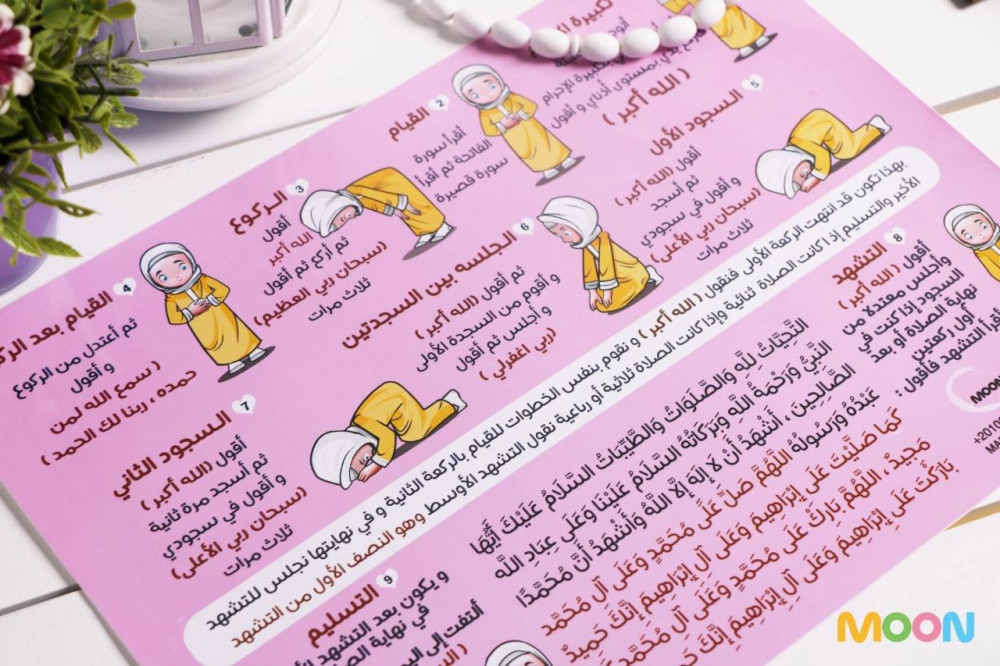 تكبيرة
بمستوى أذني و أقول
( الله أكبر )
2 القيام
أقرأ سورة
الفاتحة ثم أقرأ
سورة قصيرة
3 الركوع
أقول
الله أكبر
ثم أركع ثم أقول
(سبحان ربي العظيم)
ثلاث مرات
4 القيام بعد
ثم أعتدل من الركوع
و أقول
( سمع الله لمن
حمده ، ربنا لك الحمد )
5 السجود الأول
أقول (الله أكبر)
ثم أسجد
و أقول في سجودي
(سبحان ربي الأعلى)
ثلاث مرات
6 الجلسه بين السجدتين
ثم أقول (الله أكبر)
و أقوم من السجدة الأولى
و أجلس ثم أقول
(ربي اغفرلي)
7 السجود الثاني
أقول (الله أكبر)
ثم أسجد مرة ثانية
و أقول في سجودي
(سبحان ربي الأعلى)
ثلاث مرات
بهذا تكون قد انتهت الركعة الأولى فنقول ( الله أكبر ) و نقوم بنفس الخطوات للقيام بالركعة الثانية و في نهايتها نجلس للتشهد
الأخير والتسليم إذا كانت الصلاة ثنائية وإذا كانت الصلاة ثلاثية أو رباعية نقول التشهد الأوسط وهو النصف الأول من التشهد
8 التشهد
أقول (الله أكبر)
وأجلس معتدلا من
السجود إذا كنت في
نهاية الصلاة أو بعد
أول ركعتين
أقرأ التشهد فأقول :
التَّحِيَّاتُ لِلَّهِ وَالصَّلَوَاتُ وَالطَّيِّبَاتُ السَّلَامُ عَلَيْكَ أَيُّهَا
النَّبِيُّ وَرَحْمَةُ اللَّهِ وَبَرَكَاتُهُ السَّلَامُ عَلَيْنَا وَعَلَى عِبَادِ اللَّهِ
الصَّالِحِينَ ، أَشْهَدُ أَنْ لَا إِلَهَ إِلَّا اللَّهُ وَأَشْهَدُ أَنَّ مُحَمَّدًا
عَبْدُهُ وَرَسُولُهُ اللَّهُمَّ صَلِّ عَلَى مُحَمَّدٍ وَعَلَى آلِ مُحَمَّدٍ
كَمَا صَلَّيْتَ عَلَى إِبْرَاهِيمَ وَعَلَى آلِ إِبْرَاهِيمَ إِنَّكَ حَمِيدٌ
مَجِيدٌ، اللَّهُمَّ بَارِكْ عَلَى مُحَمَّدٍ وَعَلَى آلِ مُحَمَّدٍ
بَارَكْتَ عَلَى إِبْرَاهِيمَ وَعَلَى آلِ إِبْرَاهِيمَ إِنَّكَ
9 التسليم
و يكون بعد التشهد
في نهاية
ألتفت إلى
MOON
MOON